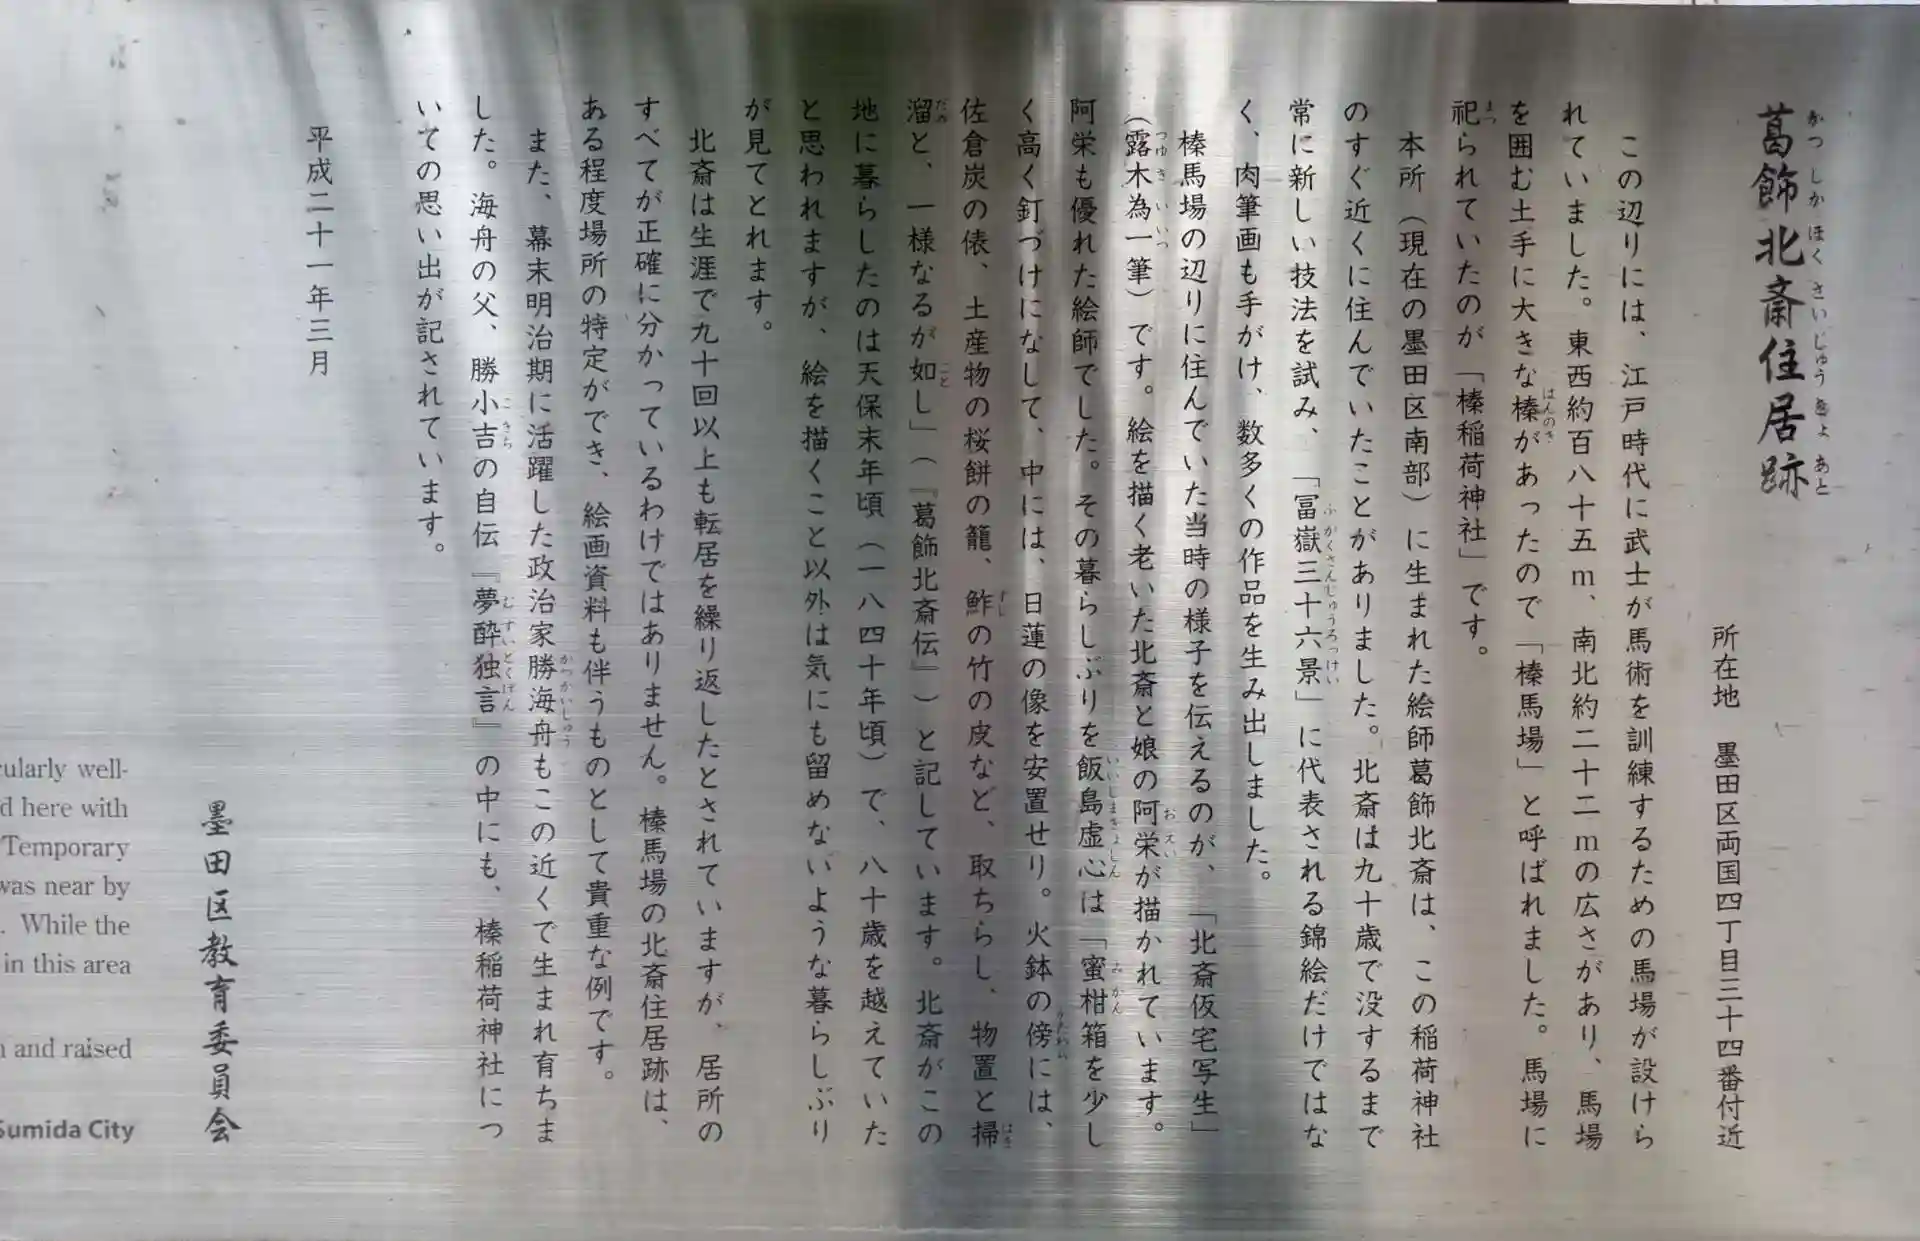 葛飾北斎住居跡
かつしかほくさいじゅうきょあと
所在地　墨田区両国四丁目三十四番付近
この辺りには、江戸時代に武士が馬術を訓練するための馬場が設けら
れていました。東西約百八十五m、南北約二十二mの広さがあり、馬場
を囲む土手に大きな榛があったので「榛馬場」と呼ばれました。馬場に
はんのき
祀られていたのが「榛稲荷神社」です。
まつ
本所（現在の墨田区南部）に生まれた絵師葛飾北斎は、この稲荷神社
のすぐ近くに住んでいたことがありました。北斎は九十歳で没するまで
常に新しい技法を試み、「冨嶽三十六景」に代表される錦絵だけではな
ふがくさんじゅうろっけい
く、肉筆画も手がけ、数多くの作品を生み出しました。
榛馬場の辺りに住んでいた当時の様子を伝えるのが、「北斎仮宅写生」
（露木為一筆）です。絵を描く老いた北斎と娘の阿栄が描かれています。
つゆきいいつ
おえい
阿栄も優れた絵師でした。その暮らしぶりを飯島虚心は「蜜柑箱を少し
いいじまきょしん
みかん
く高く釘づけになして、中には、日蓮の像を安置せり。火鉢の傍には、
かたわら
佐倉炭の俵、土産物の桜餅の籠、鮓の竹の皮など、取ちらし、物置と掃
すし
はき
溜と、一様なるが如し」（『葛飾北斎伝』）と記しています。北斎がこの
だめ
ごと
地に暮らしたのは天保末年頃（一八四十年頃）で、八十歳を越えていた
と思われますが、絵を描くこと以外は気にも留めないような暮らしぶり
が見てとれます。
北斎は生涯で九十回以上も転居を繰り返したとされていますが、居所の
すべてが正確に分かっているわけではありません。榛馬場の北斎住居跡は、
ある程度場所の特定ができ、絵画資料も伴うものとして貴重な例です。
また、幕末明治期に活躍した政治家勝海舟もこの近くで生まれ育ちま
かつかいしゅう
した。海舟の父、勝小吉の自伝『夢酔独言』の中にも、榛稲荷神社につ
こきち
むすいどくげん
いての思い出が記されています。
平成二十一年三月
墨田区教育委員会
cularly well-
d here with
Temporary
was near by
. While the
in this area
n and raised
Sumida City